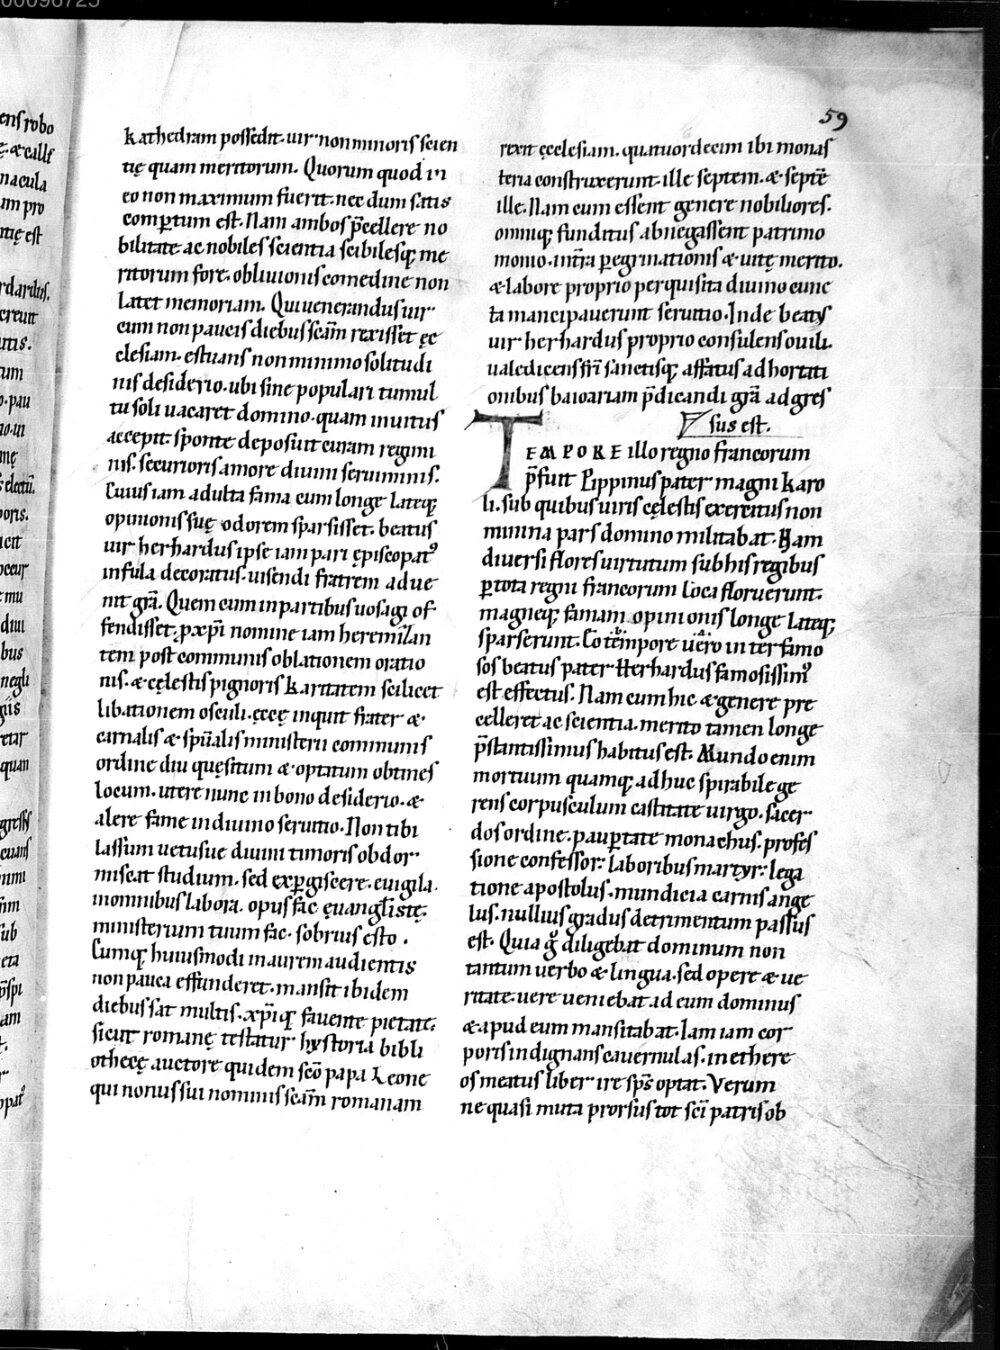 00098725
59
ens robo
ę. & calls
macula
um pro
ntię est
rdardus.
creuit
utis.
tum
o. pau
mę
electū.
poris.
bus
negli
giis
quan
gressꝰ
sub
am
kathedram possedit. uir non minoris scien
tię quam meritorum. Quorum quod in
eo non maximum fuerit. nec dum satis
compertum est. Nam ambos p̄cellere no
bilitate ac nobiles scientia scibilesq; me
ritorum fore. obliuionis comedine non
latet memoriam. Qui uenerandus uir
cum non paucis diebus sc̄am rexisset ęc
clesiam. estuans non minimo solitudi
nis desiderio. ubi sine populari tumul
tu soli uacaret domino. quam inuitus
accepit. sponte deposuit curam regimi
nis. securioris amore diuini seruiminis.
Cuius iam adulta fama cum longe lateq;
opinionis suę odorem sparsisset. beatus
uir herhardus ipse iam pari ępiscopatꝰ
infula decoratus. uisendi fratrem adue
nit gr̄a. Quem cum in partibus uosagi of
fendisset. p xp̄i nomine iam heremitan
tem post communis oblationem oratio
nis. & cęlestis pignoris karitatem scilicet
libationem osculi. ecce inquit frater &
carnalis & sp̄ualis ministerii communis
ordine diu quęsitum & optatum obtines
locum. utere nunc in bono desiderio. &
alere fame in diuino seruitio. Non tibi
lassum uetusue diuini timoris obdor
miscat studium. sed exꝑgiscere. euigila.
in omnibus labora. opus fac ęuanglistę.
ministerium tuum fac. sobrius esto.
Cumq; huiusmodi in aurem audientis
non pauca effunderet. mansit ibidem
diebus sat multis. xp̄iq; fauente pietate.
sicut romanę testatur hystoria bibli
othecę auctore quidem sc̄o papa Leone
qui nonus sui nominis sc̄am romanam
rexit ęcclesiam. quatuordecim ibi monas
teria construxerunt. ille septem. & septē
ille. Nam cum essent genere nobiliores.
omniq; funditus abnegassent patrimo
monio. intra ꝑegrinationis & uitę merito.
& labore proprio perquisita diuino cunc
ta mancipauerunt seruitio. Inde beatꝰ
uir herhardus proprio consulens ouili.
ualedicens fr̄i sanctisq; affatus adhortati
onibus baioariam p̄dicandi gr̄a adgres
sus est.
TEMPORE illo regno francorum
p̄fuit Pippinus pater magni karo
li. sub quibus uiris cęlestis exercitus non
minima pars domino militabat. Nam
diuersi flores uirtutum sub his regibus
ꝑ tota regni francorum loca floruerunt.
magneq; famam opinionis longe lateq;
sparserunt. Eo tempore uero inter famo
sos beatus pater Herhardus famosissimꝰ
est effectus. Nam cum hic & genere pre
celleret ac scientia. merito tamen longe
p̄stantissimus habitus est. Mundo enim
mortuum quamq; adhuc spirabile ge
rens corpusculum castitate uirgo. sacer
dos ordine. pauꝑtate monachus. profes
sione confessor. laboribus martyr. lega
tione apostolus. mundicia carnis ange
lus. nullius gradus detrimentum passus
est. Quia g̊ diligebat dominum non
tantum uerbo & lingua. sed opere & ue
ritate. uere ueniebat ad eum dominus
& apud eum mansitabat. Iam iam cor
poris indignans cauernulas. in ethere
os meatus liber ire sp̄s optat. Verum
ne quasi muta prorsus tot sc̄i patris ob